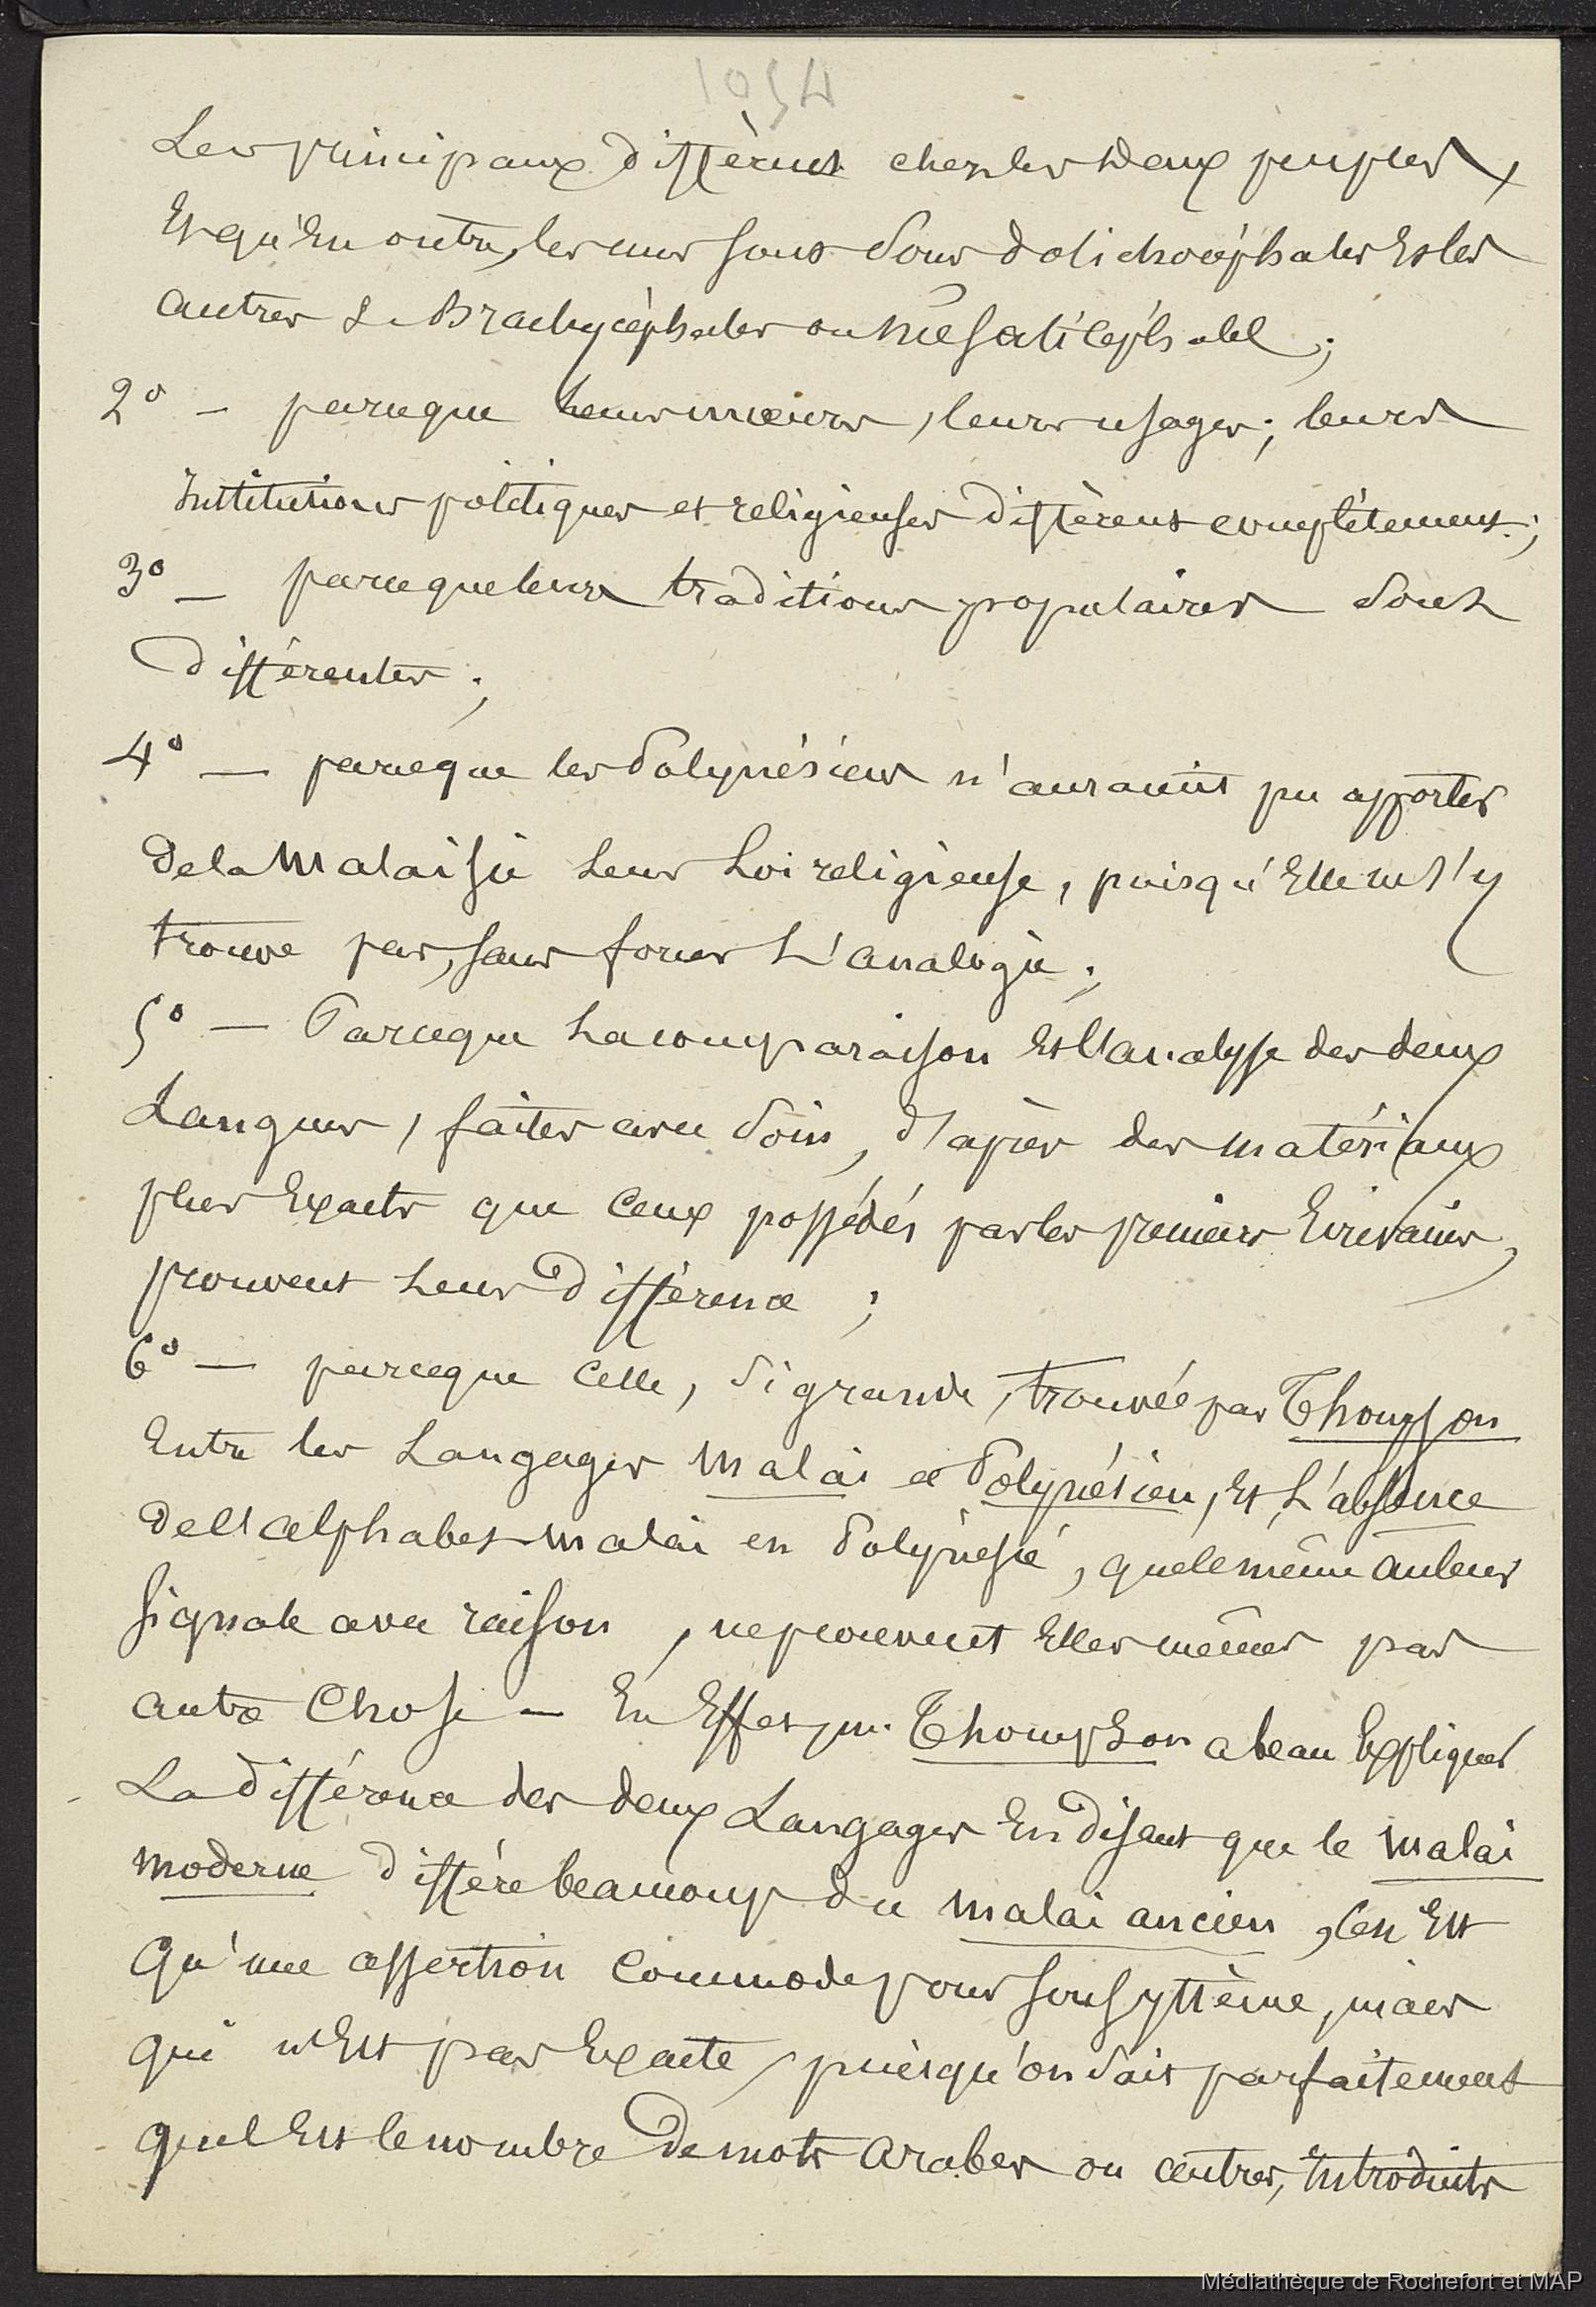 1054
Les principaux diffèrent chez les deux peuples,
Et qu'En outre, les uns sont sous dolichocéphales Et les
autres s. Brachycéphales ou Mésaticéphales;
2° — parceque leurs mœurs, leurs usages; leurs
Institutions politiques et religieuses diffèrent complètement;
3° — parceque leurs traditions populaires sont
différentes;
4° — parceque les Polynésiens n'auraient pu apporter
de la Malaisie leur Loi religieuse, puisqu'Elle ne s'y
trouve pas, sans forcer L'analogie;
5° — Parceque La comparaison Et l'analyse des deux
Langues, faites avec soin, d'après des matériaux
plus Exacts que Ceux possédés par les premiers Ecrivains,
prouvent Leur différence;
6° — parceque Celle, si grande, trouvée par Thompson
Entre les Langages malai et Polynésien, Et L'absence
de l'alphabet malai en Polynésie, que le même auteur
signale avec raison, ne prouvent Elles mêmes pas
autre Chose — En Effet, m. Thompson a beau Expliquer
La différence des deux Langages En disant que le malai
moderne diffère beaucoup du malai ancien, Ce n'Est
qu'une assertion Commode pour son système, mais
qui n'Est pas Exacte, puisqu'on sait parfaitement
quel Est le nombre de mots arabes ou autres, introduits
Médiathèque de Rochefort et MAP